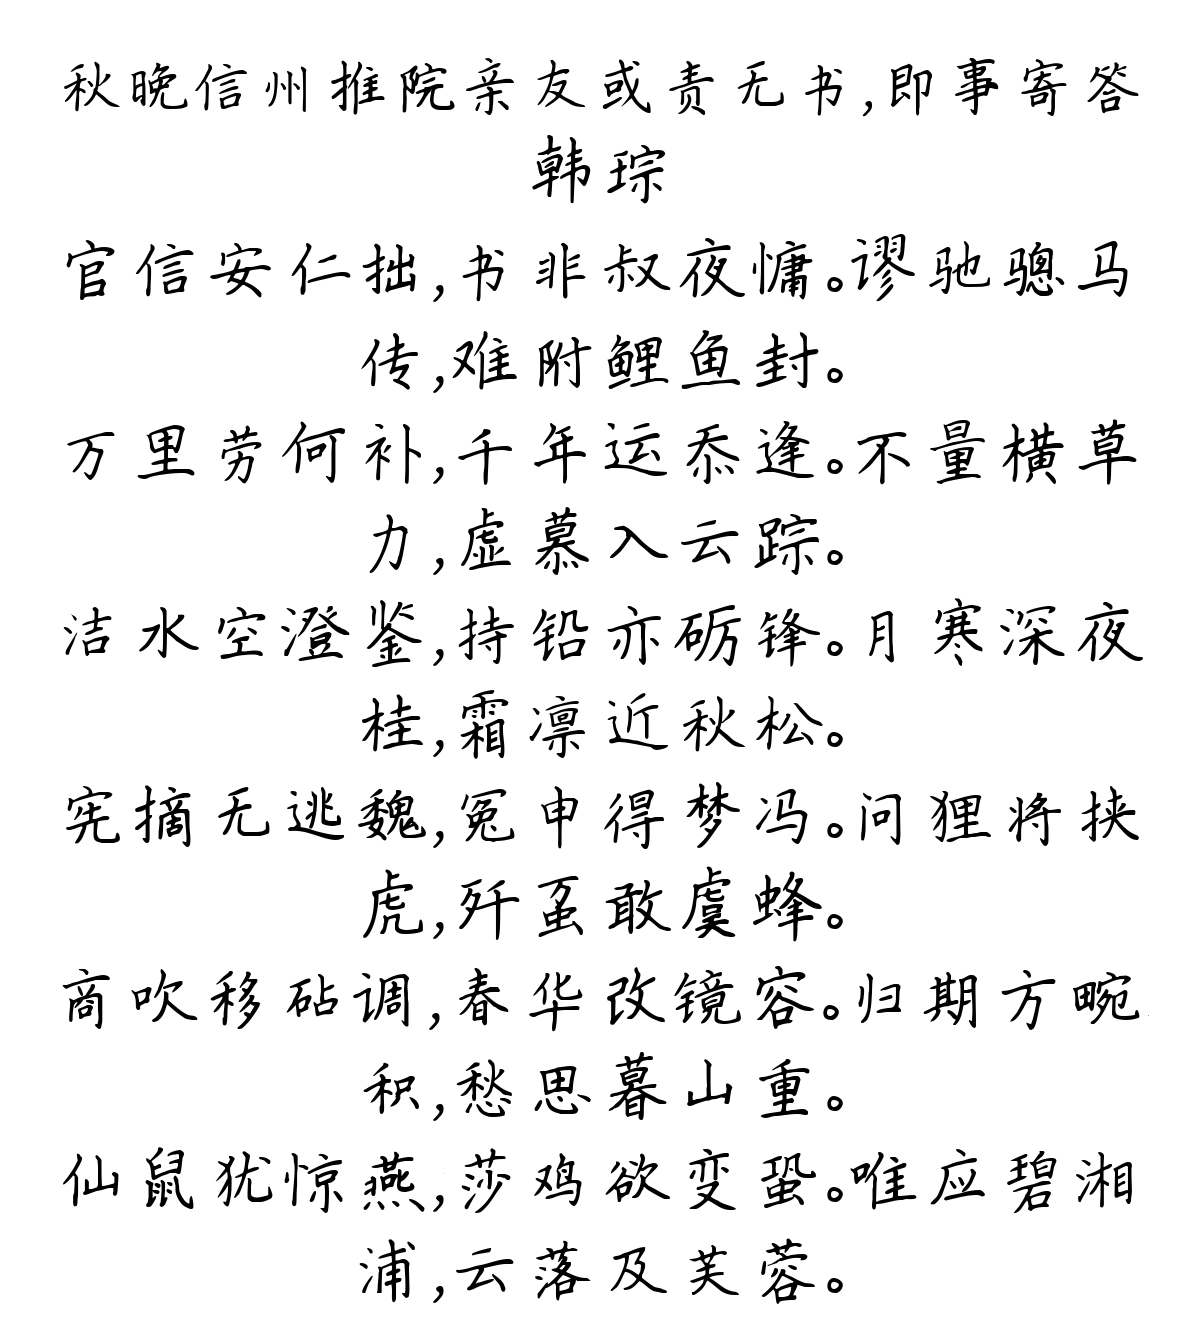 秋晚信州推院亲友或责无书,即事寄答
韩琮
官信安仁拙,书非叔夜慵。谬驰骢马
传,难附鲤鱼封。
万里劳何补,千年运忝逢。不量横草
力,虚慕入云踪。
洁水空澄鉴,持铅亦砺锋。月寒深夜
桂,霜凛近秋松。
宪摘无逃魏,冤申得梦冯。问狸将挟
虎,歼虿敢虞蜂。
商吹移砧调,春华改镜容。归期方畹
积,愁思暮山重。
仙鼠犹惊燕,莎鸡欲变蛩。唯应碧湘
浦,云落及芙蓉。